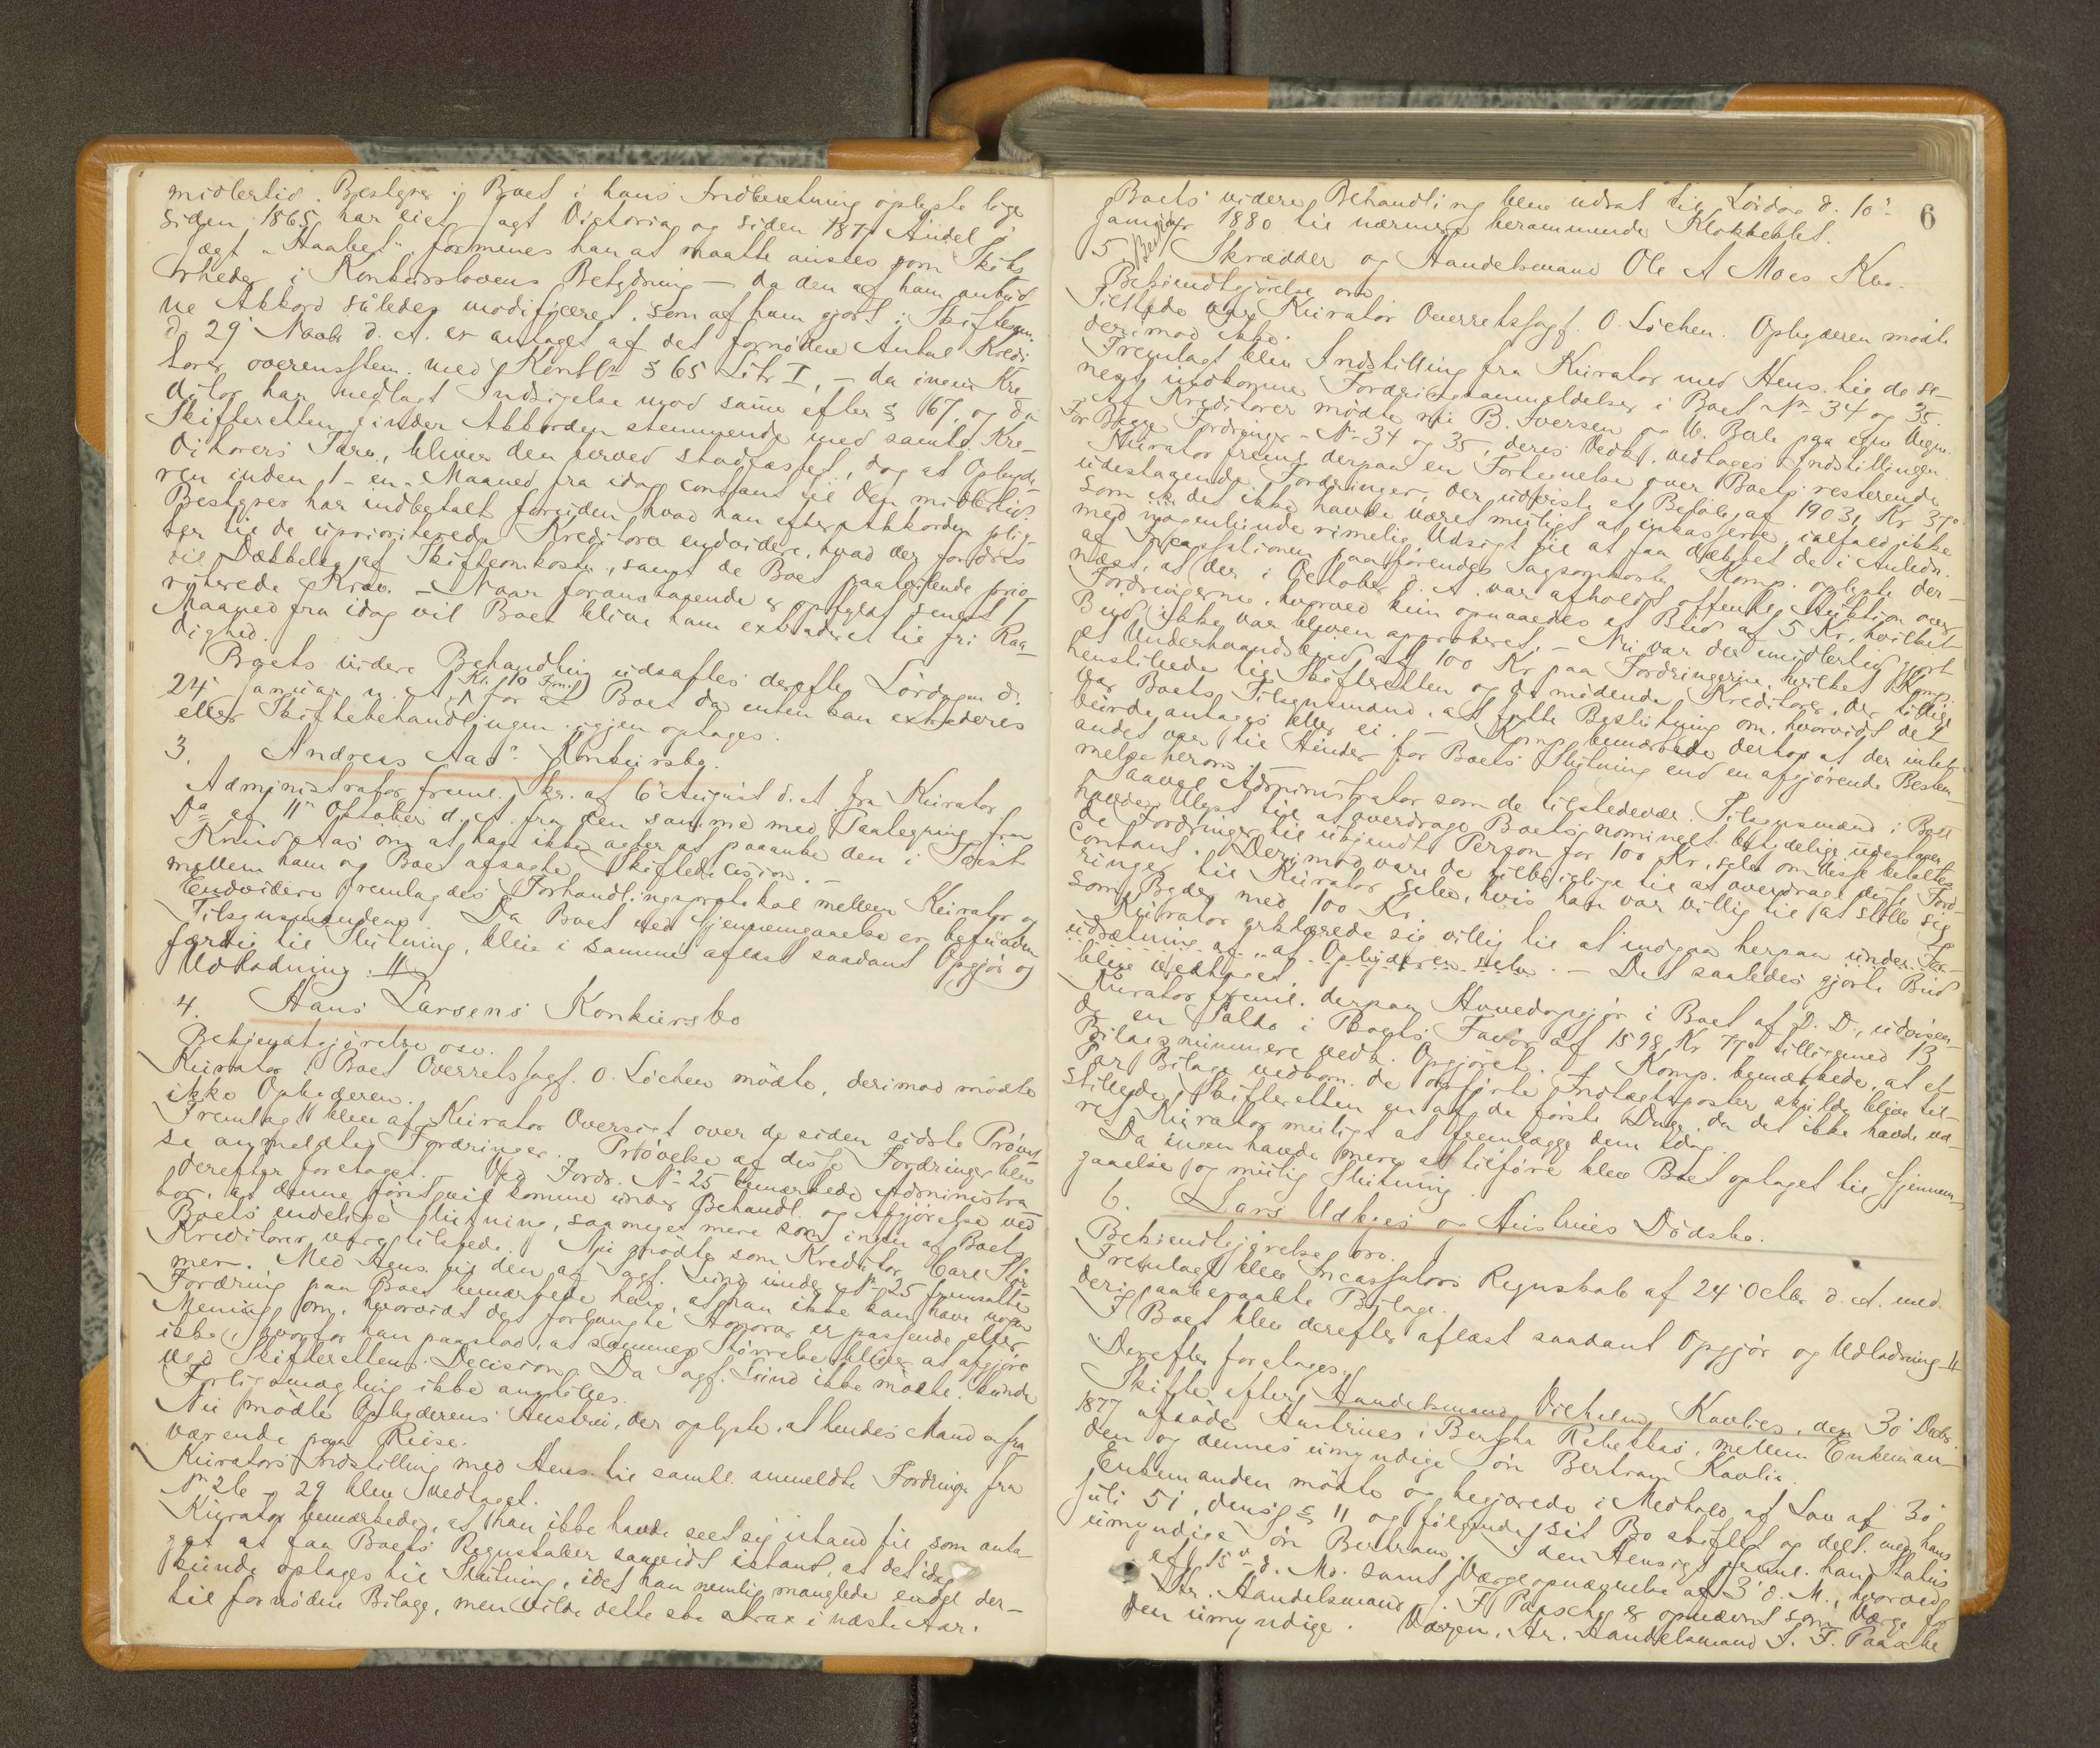 midlertid. Bestyrer i Boet i hans Indberetning oplyste lige
siden 1865 har eiet Jagt Victoria og siden 187 Andel i
Jægt „Haabet“, formenes han at maatte ansees som Skibs-
rheder i Konkurslovens Betydning – da den af ham anbud-
ne Akkord således modificeret, som af ham gjort i Skiftesam.
d. 29' Novbr d. A. er antaget af det fornødne Antal Kredi-
torer overensstem. med Konkl § 65 Litr I, – da ingen Kre-
ditor har nedlagt Indsigelse mod samme efter § 167, og da
Skifteretten finder Akkorden stemmende med samtl. Kre-
ditorers Tarv, bliver den herved stadfæstet, dog at Opbyde-
ren inden 1 – en – Maaned fra idag contant til den midlertid.
Bestyrer har indbetalt forsiden hvad han efter Akkorden plig-
ter til de uprioriterede Kreditorer endvidere, hvad der fordres
til Dækkelse af Skifteomkostn, samt de Boet paahvilende prio-
riterede Krav. – Naar foranstaaende er opfyldt senest 1
Maaned fra idag vil Boet blive ham extraderet til fri Raa-
dighed.
Boets videre Behandling udsattes derefter Lördagen d.
24' Januar n. A. Kl. 10 Fmd for at Boet da enten kan extraderes
eller Skiftebehandlingen igjen optages.
3. Andreas Aas' Konkursbo.
Administrator freml. Skr. af 6' August d. A. fra Kurator
Da af 11' Oktober d. A. fra den samme med Paategning fra
Knud Aas om at han ikke agter at paaanke den i Tvist
mellem ham og Boet afsagte Skiftedecision. –
Endvidere fremlagdes Forhandlingsprotokol mellem Kurator og
Tilsynsmændene. Da Boet ved Gjennemgaaelse er befunden
færdig til Slutning, blev i samme aflæst saadant Opgjör og
Udlodning: //
4. Hans Larsens Konkursbo
Bekjendtgjörelse osv.
Kurator i Boet Overretssagf. O. Lochen mödte, derimod mödte
ikke Opbyderen.
Fremlagt blev af Kurator Oversigt over de siden sidste Prövel-
se anmeldte Fordringer. Prövelse af disse Fordringer blev
derefter foretaget. – Ved Fordr. No 25 bemærkede Administra-
tor, at denne först vil komme under Behandl. og Afgjörelse ved
Boets endelige Slutning, saa meget mere som ingen af Boets
Kreditorer vare tilstede. Nu mödte som Kreditor Carl Stör-
mer. Med Hens. til den af Sagf. Lund under No 25 fremsatte
Fordring paa Boet bemærkede han, at han ikke kan have nogen
Mening om, hvorvidt det forlangte Honorar er passende eller
ikke, hvorfor han paastod, at sammes Störrelse bliver at afgjöre
ved Skifterettens Decision. Da Sagf. Lund ikke mödte kunde
Forligsmægling ikke anstilles.
Nu mödte Opbyderens Hustru, der oplyste, at hendes Mand er fra-
værende paa Reise.
Kurators Indstilling med Hens. til samtl. anmeldte Fordringer fra
No 26 – 29 blev vedtaget.
Kurator bemærkede, at han ikke havde seet sig istand til som anta-
get at faa Boets Regnskaber saavidt istand, at det idag
kunde optages til Slutning, idet han nemlig manglede endel der-
til fornödne Bilage, men vilde dette ske strax i næste Aar.
6
Boets videre Behandling blev udsat til Lördag d. 10'
Januar 1880 til nærmere berammende Klokkeslet.
5 Skrædder og Handelsmand Ole A Moes Kbo.
Bekjendtgjörelse osv
Tilstede var Kurator Overretssagf. O. Lochen. Opbyderen mödte
derimod ikke.
Fremlagt blev Indstilling fra Kurator med Hens. til de se-
nest indkomne Fordringsanmeldelser i Boet No 34 og 35.
Af Kreditorer mödte nu B. Iversen og U. Berle paa egne Vegne.
For Begge Fordringer – No 34 og 35, deres Vedk. vedtages Indstillingen.
Kurator freml derpaa en Fortegnelse over Boets resterende
udestaaende Fordringer, der udviste et Belöb af 1903, Kr 37ö
som det ikke havde været muligt at inkassere, ialfald ikke
med nogenlunde rimelig Udsigt til at faa dækket de i Anledn.
af Incassationen paaførendes Sagsomkostn. Komp. oplyste der-
næst, at der i October d. A. var afholdt offentlig Auktion over
Fordringerne, hvorved kun opnaaedes et Bud af 5 Kr, hvilket
Bud ikke var bleven approberet. – Nu var der imidlertid gjort
et Underhaandsbud af 100 Kr paa Fordringerne, hvilket Komp.
henstillede til Skifteretten og de mödende Kreditorer, der tillige
var Boets Tilsynsmænd, at fatte Beslutning om, hvorvidt det
burde antages eller ei. – Komp. bemærkede derhos at der intet
andet var til Hinder for Boets Slutning end en afgjörende Bestem-
melse herom.
Saavel Administrator som de tilstedevær. Tilsynsmænd i Boet
havde Ulyst til at overdrage Boets nominelt betydelige udestaaen-
de Fordringer til ubekjendt Person for 100 Kr, selv om disse betaltes
contant. Derimod vare de tilböielige til at overdrage disse Ford-
ringer til Kurator selv, hvis han var villig til at stille sig
som Byder med 100 Kr.
Kurator erklærede sig villig til at indgaa herpaa under For-
udsætning af „at Opbyderen selv. – Det saaledes gjorte Bud
blev vedtaget.
Kurator freml. derpaa Hovedopgjör i Boet af D. D., udvisen-
de en Saldo i Boets Favör af 1598 Kr 77ö tilligemed 13
Bilagsnummere vedk. Opgjöret. – Komp. bemærkede, at et
Par Bilage vedkom. de opförte Indtægtsposter skulde blive til-
stillede Skifteretten en af de förste Dage, da det ikke havde væ-
ret Kurator muligt at fremlægge dem idag.
Da ingen havde mere at tilföre blev Boet optaget til Gjennem-
gaaelse og mulig Slutning.
6. Lars Udbyes og Hustrues Dödsbo.
Bekjendtgjörelse osv.
Fremlagt blev Incassators Regnskab af 24' Octbr d. A. med
deri paaberaabte Bilage.
I Boet blev derefter aflæst saadant Opgjör og Udlodning //
Derefter foretages:
Skifte efter Handelsmand Vilhelm Kavlies, den 30' Decbr.
1877 afdöde Hustrues, Berthe Rebekkas, mellem Enkeman-
den og dennes umyndige Sön Bertram Kavlie.
Enkemanden mödte og begjærede i Medhold af Lov af 30'
Juli 51, dens § 11 og fölgende, sit Bo skiftet og delt med hans
umyndige Sön Bertram. I den Hensigt freml. han Status
eft. 15' d. Md. samt Værgeopnævnelse af 3' d. M., hvorved
Hr. Handelsmand J. F. Paasche er opnævnt som Værge for
den umyndige. Værgen, Hr. Handelsmand J. F. Paasche